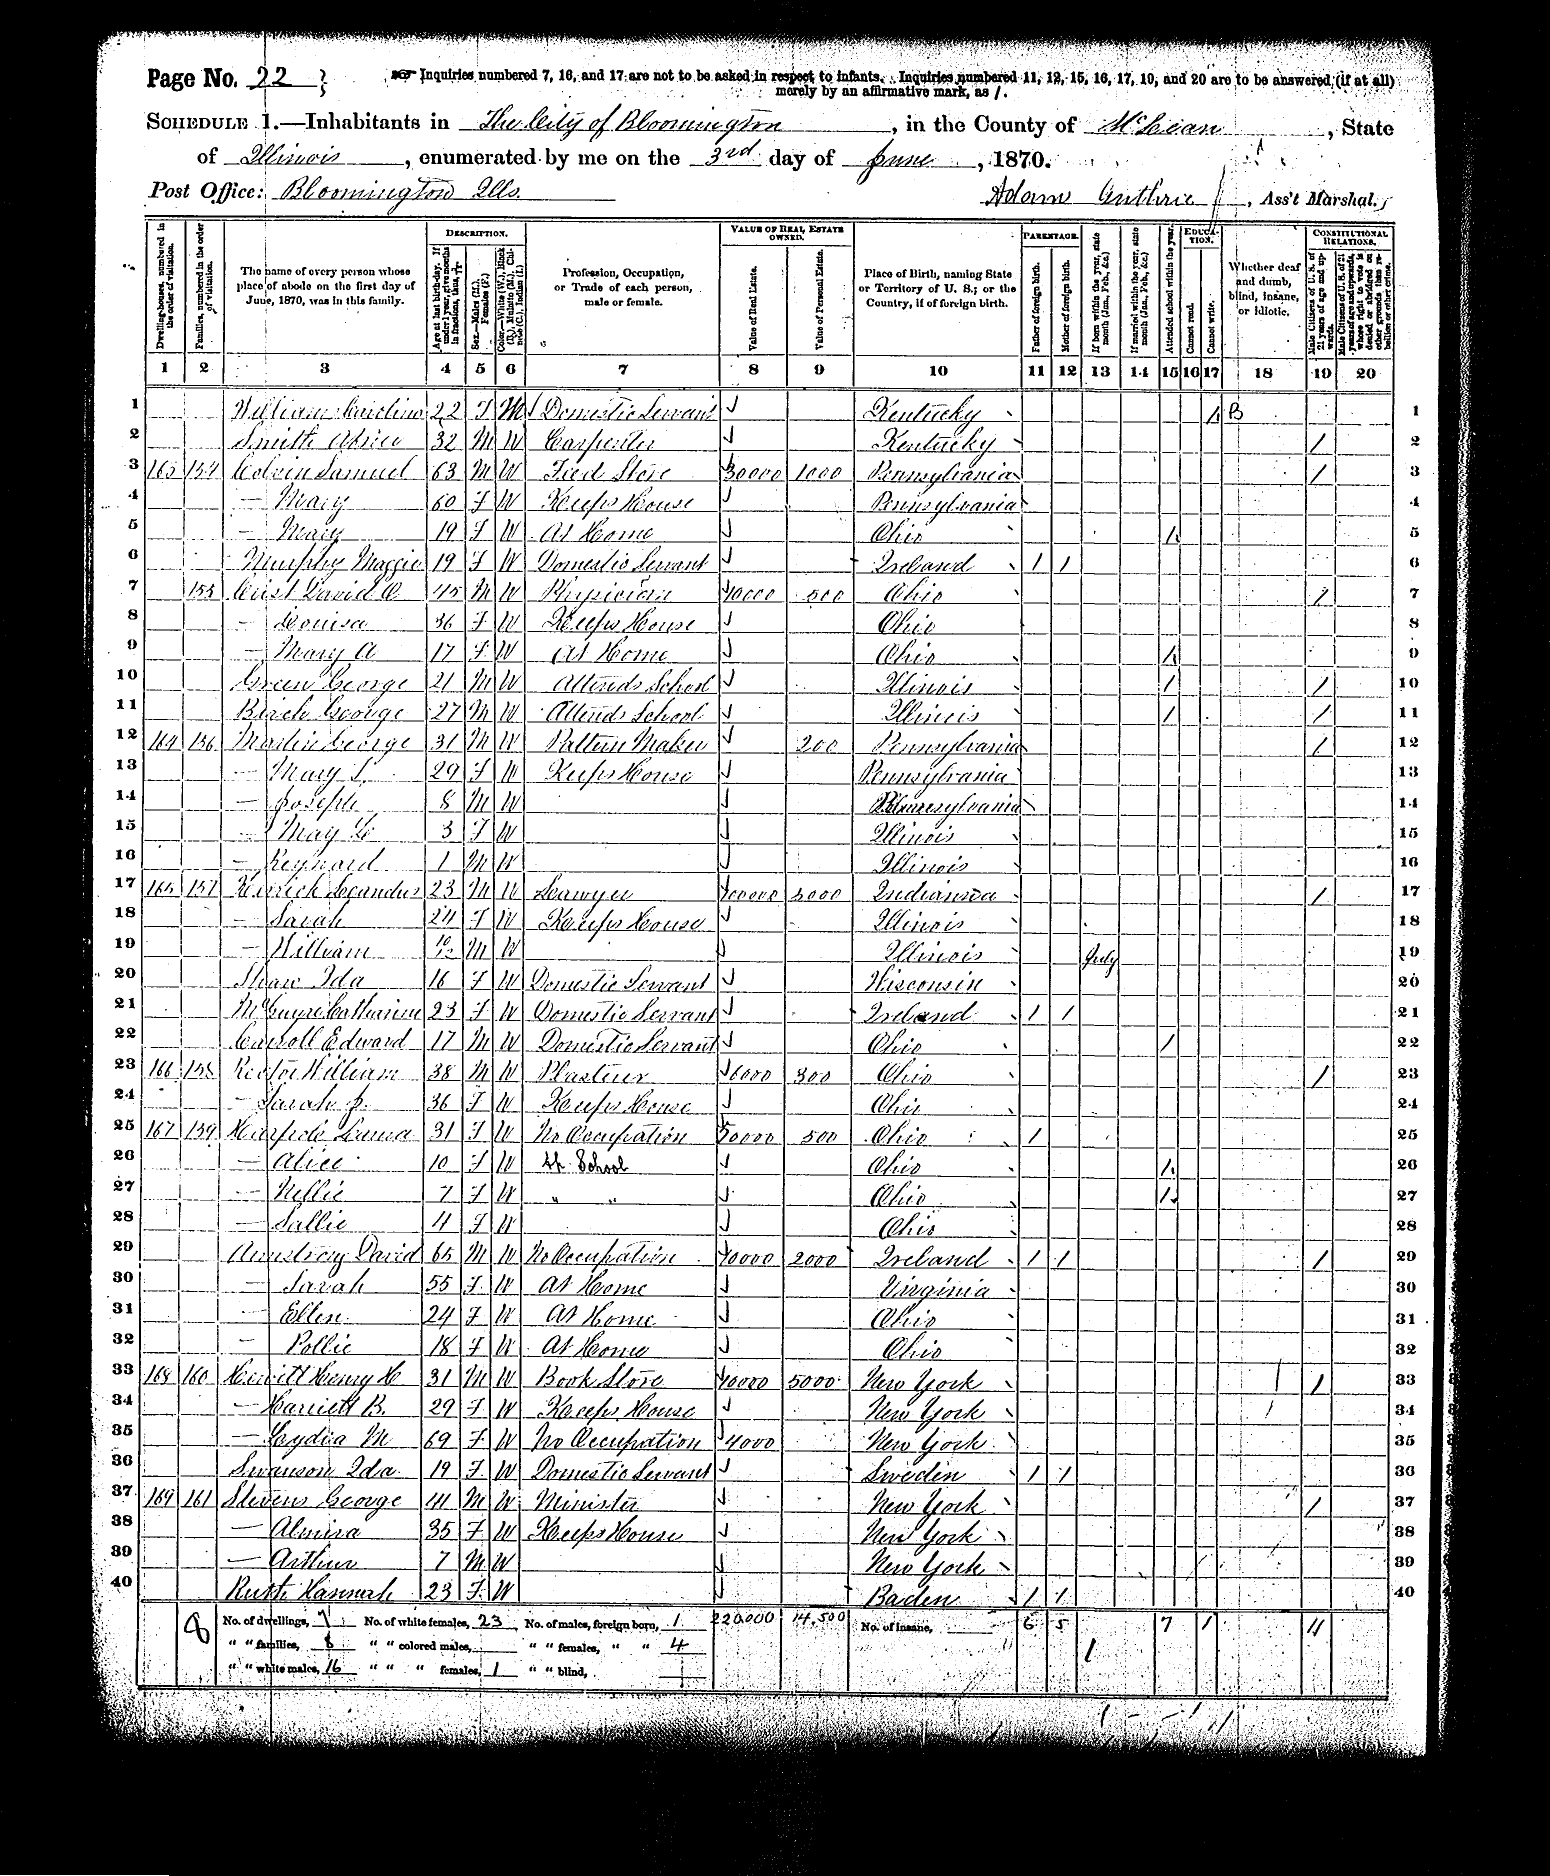 Page No. 22
Inquiries numbered 7, 16, and 17 are not to be asked in respect to infants. Inquiries numbered 11, 12, 15, 16, 17, 19, and 20 are to be answered (if at all)
merely by an affirmative mark, as /.
SCHEDULE 1.—Inhabitants in The City of Bloomington, in the County of McLean, State
of Illinois, enumerated by me on the 3rd day of June, 1870.
Post Office: Bloomington Ills.
Adam Guthrie, Ass't Marshal.
Dwelling-houses, numbered in the order of visitation.
Families, numbered in the order of visitation.
The name of every person whose place of abode on the first day of June, 1870, was in this family.
DESCRIPTION.
Age at last birth-day. If under 1 year, give months in fractions, thus, 3/12
Sex.—Males (M.), Females (F.)
Color.—White (W.), Black (B.), Mulatto (M.), Chinese (C.), Indian (I.)
Profession, Occupation, or Trade of each person, male or female.
VALUE OF REAL ESTATE OWNED.
Value of Real Estate.
Value of Personal Estate.
Place of Birth, naming State or Territory of U. S.; or the Country, if of foreign birth.
PARENTAGE.
Father of foreign birth.
Mother of foreign birth.
If born within the year, state month (Jan., Feb., &c.)
If married within the year, state month (Jan., Feb., &c.)
Attended school within the year.
EDUCATION.
Cannot read.
Cannot write.
Whether deaf and dumb, blind, insane, or idiotic.
CONSTITUTIONAL RELATIONS.
Male Citizens of U. S. of 21 years of age and upwards.
Male Citizens of U. S. of 21 years of age and upwards, whose right to vote is denied or abridged on other grounds than rebellion or other crime.
1 2 3 4 5 6 7 8 9 10 11 12 13 14 15 16 17 18 19 20
1 William Caroline 22 F M Domestic Servant Kentucky / B 1
2 Smith 32 M W Carpenter Kentucky / 2
3 163 154 Colvin Samuel 63 M W Feed Store 30000 1000 Pennsylvania / 3
4 — Mary 60 F W Keeps House Pennsylvania 4
5 — Mary 19 F W At Home Ohio / 5
6 Murphy Maggie 19 F W Domestic Servant Ireland / / 6
7 155 Crist David O 45 M W Physician 10000 500 Ohio / 7
8 — Louisa 36 F W Keeps House Ohio 8
9 — Mary A 17 F W At Home Ohio / 9
10 Green George 21 M W Attends School Illinois / / 10
11 Birch George 27 M W Attends School Illinois / / 11
12 164 156 Martin George 31 M W Pattern Maker 200 Pennsylvania / 12
13 — Mary L. 29 F W Keeps House Pennsylvania 13
14 — Joseph 8 M W Pennsylvania 14
15 — May 3 F W Illinois 15
16 — Reynard 1 M W Illinois 16
17 165 157 Leandus 23 M W Lawyer 100000 5000 Indiana / 17
18 — Sarah 24 F W Keeps House Illinois 18
19 — William 10/12 M W Illinois July 19
20 Shaw Ida 16 F W Domestic Servant Wisconsin 20
21 McGuyre Catharine 23 F W Domestic Servant Ireland / / 21
22 Carroll Edward 17 M W Domestic Servant Ohio / 22
23 166 158 Rector William 38 M W Plasturer 6000 300 Ohio / 23
24 — Sarah J. 36 F W Keeps House Ohio 24
25 167 159 Harpole Laura 31 F W No Occupation 50000 500 Ohio / 25
26 — Alice 10 F W At School Ohio / 26
27 — Nellie 7 F W " " Ohio / 27
28 — Sallie 4 F W Ohio 28
29 Armstrong David 65 M W No Occupation 10000 2000 Ireland / / / 29
30 — Sarah 55 F W At Home Virginia 30
31 — Ellen 24 F W At Home Ohio 31
32 — Pollie 18 F W At Home Ohio 32
33 168 160 Hewitt Henry H 31 M W Book Store 10000 5000 New York / 33
34 — Harriett B. 29 F W Keeps House New York 34
35 — Lydia M 69 F W No Occupation 4000 New York 35
36 Swanson Ida 19 F W Domestic Servant Sweden / / 36
37 169 161 Stevens George 41 M W Minister New York / 37
38 — Almira 35 F W Keeps House New York 38
39 — Arthur 7 M W New York 39
40 Ruth Hannah 23 F W Baden / / 40
8
No. of dwellings, 7 No. of white females, 23 No. of males, foreign born, 1 220,000 14,500 No. of insane, 6 5 7 1 11
" " families, 8 " " colored males, " " females, " " 4 1
" " white males, 16 " " " females, 1 " " blind, 1